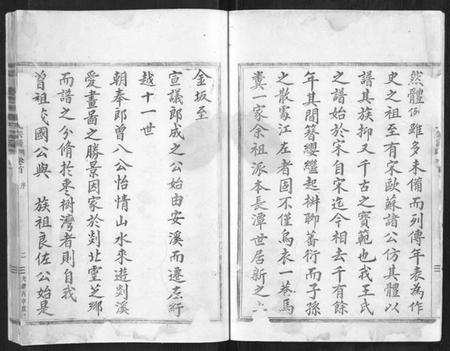 然體例雖多未備而列傳年表為作
史之祖至有宋歐蘇諸公仿其體以
譜其族抑又千古之寶範也我王氏
之譜始於宋自宋迄今相去千有餘
年其間簪纓繼起椒聊蕃衍而子孫
之散處江左者固不僅烏衣一巷馬
糞一家余祖派本長潭世居新之
金坂至
宣議郎成之公始由安溪而遷
越十一世
朝奉郎曾八公怡情山水來遊剡溪
愛畫啚之勝景因家於剡北靈芝鄉
而譜之分脩於棗樹灣者則自我
曾祖茂國公與 族祖良佐公始是
序
二